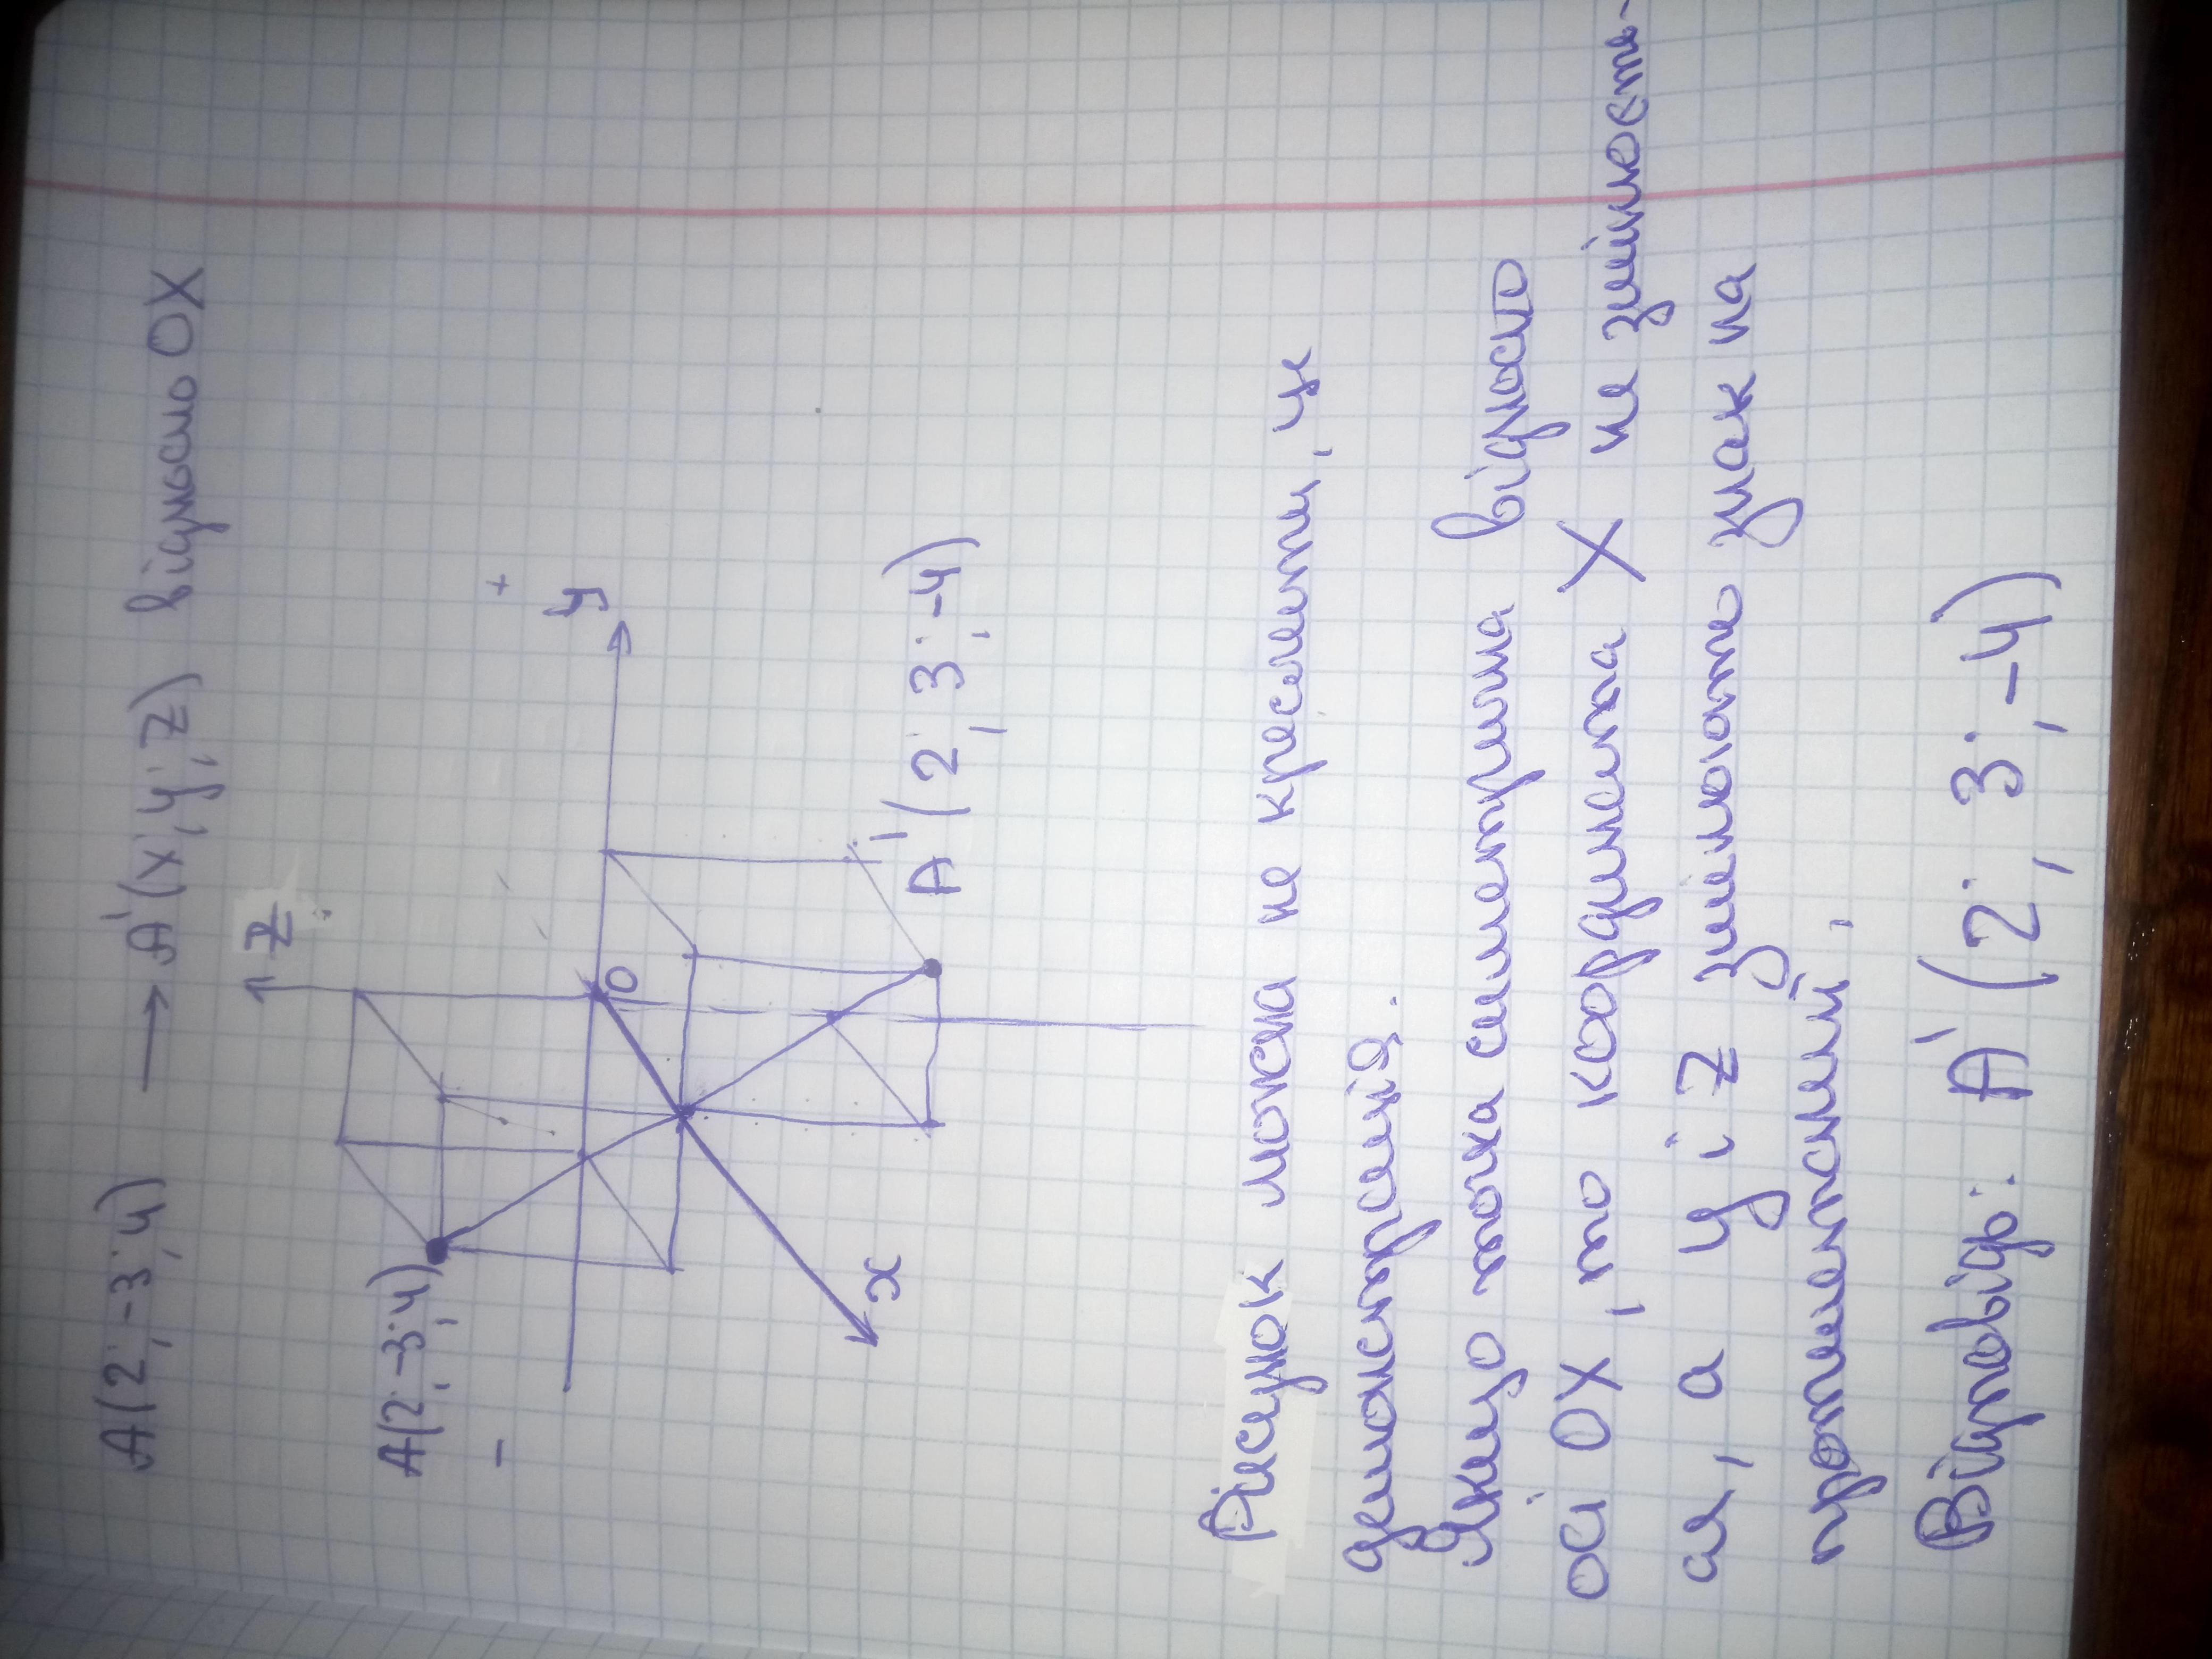 A(2;-3;4) → A'(x;y;z) відносно OX
Z
A(2;-3;4)
- +
y
O
x
A'(2;3;-4)
Рисунок можна не креслити, це
демонстрація.
Якщо точка симетрична відносно
осі OX, то координата X не змінюєть-
ся, а y і z змінюють знак на
протилежний.
Відповідь: A'(2;3;-4)